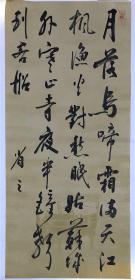 月落烏啼霜滿天江
楓漁火對愁眠姑蘇城
外寒山寺夜半鐘聲
到客船